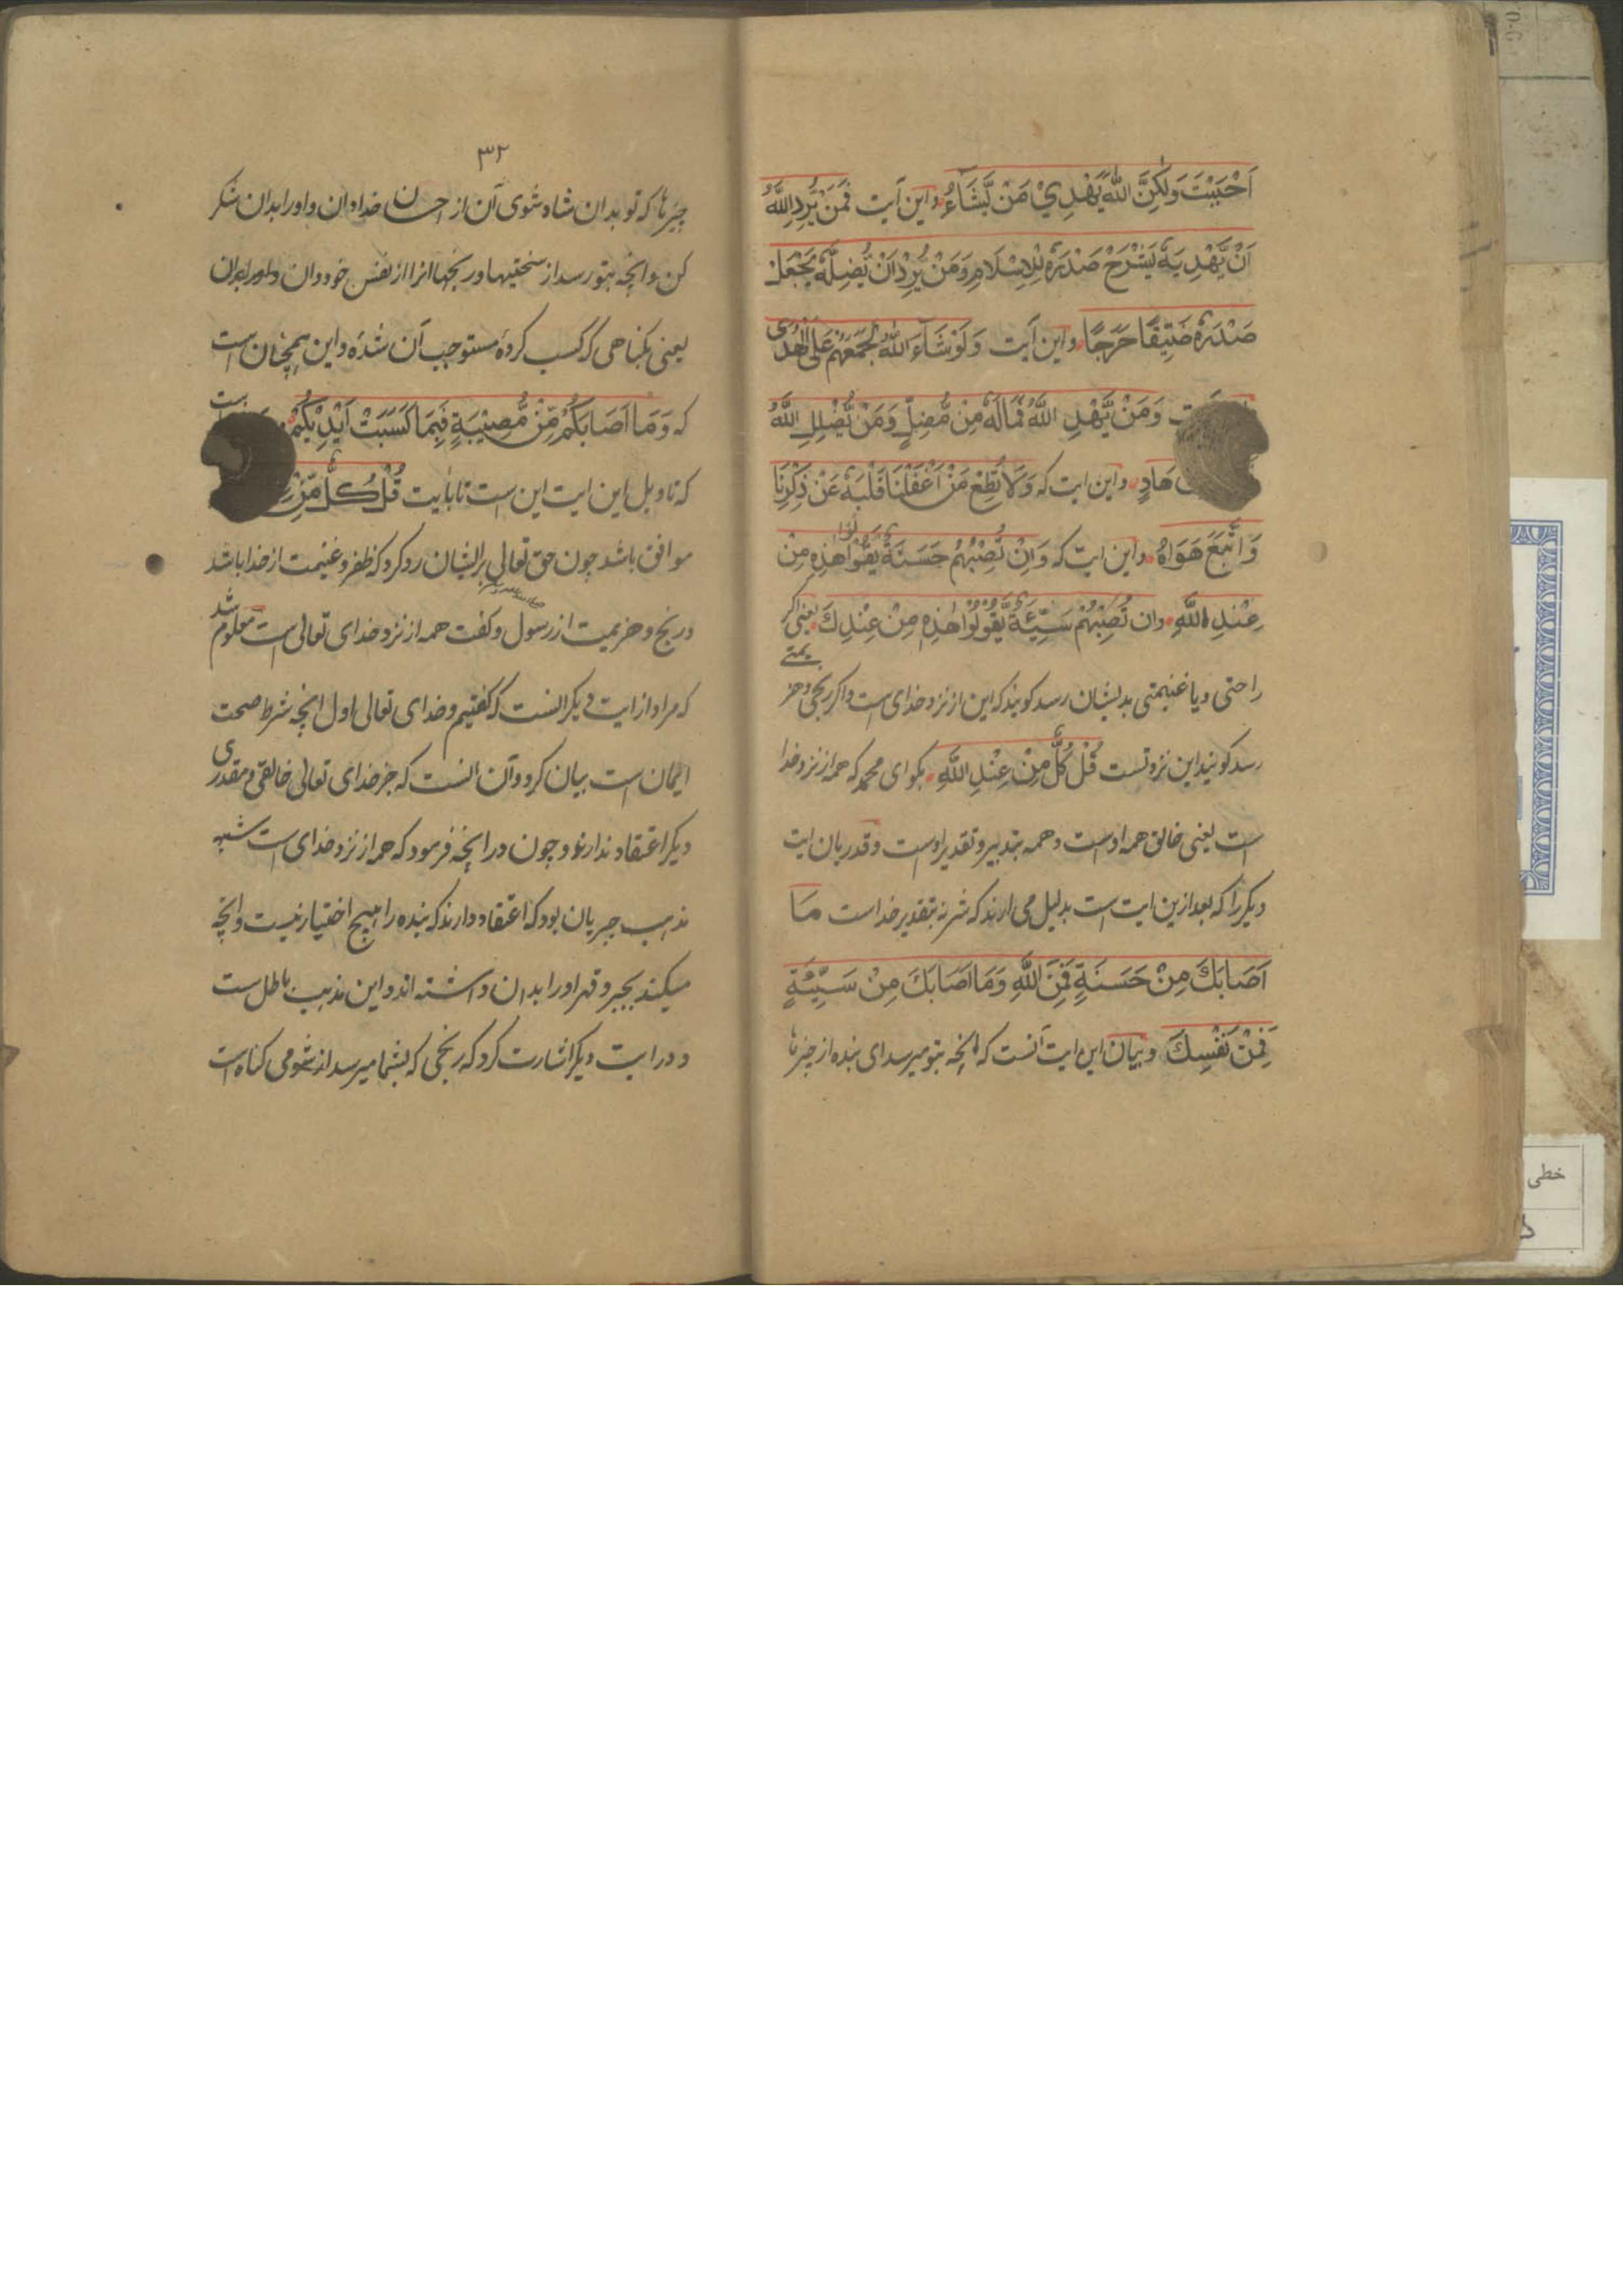 اَحْبَبْتَ وَلٰكِنَّ اللّٰهَ يَهْدِيْ مَنْ يَّشَآءُ و این آیت فَمَنْ يُّرِدِ اللّٰهُ
اَنْ يَّهْدِيَهٗ يَشْرَحْ صَدْرَهٗ لِلْاِسْلَامِ وَمَنْ يُّرِدْ اَنْ يُّضِلَّهٗ يَجْعَلْ
صَدْرَهٗ ضَيِّقًا حَرَجًا و این آیت وَلَوْ شَآءَ اللّٰهُ لَجَمَعَهُمْ عَلَى الْهُدٰى
وَمَنْ يَّهْدِ اللّٰهُ فَمَا لَهٗ مِنْ مُّضِلٍّ وَمَنْ يُّضْلِلِ اللّٰهُ
هَادٍ و این ایت که وَلَا تُطِعْ مَنْ اَغْفَلْنَا قَلْبَهٗ عَنْ ذِكْرِنَا
وَاتَّبَعَ هَوَاهُ و این ایت که وَاِنْ تُصِبْهُمْ حَسَنَةٌ يَّقُوْلُوْا هٰذِهٖ مِنْ
عِنْدِ اللّٰهِ وان تُصِبْهُمْ سَيِّئَةٌ يَّقُوْلُوْا هٰذِهٖ مِنْ عِنْدِكَ یعنی اکر
راحتی و یا غنیمتی بدیشان رسد کویند که این از نزد خدای است و اکر رنجی و هزیمتے
رسد کونید این نزد تست قُلْ كُلٌّ مِّنْ عِنْدِ اللّٰهِ بکو ای محمد که همه از نزد خدا
است یعنی خالق همه اوست و همه بتدبیر و تقدیر اوست و قدریان ایت
دیکر را که بعد ازین ایت است بدلیل می ارند که شر نه بتقدیر خداست مَا
اَصَابَكَ مِنْ حَسَنَةٍ فَمِنَ اللّٰهِ وَمَا اَصَابَكَ مِنْ سَيِّئَةٍ
فَمِنْ نَفْسِكَ و بیان این ایت آنست که انچه بتو میرسد ای بنده از چیزها
۳۲
چیزها که تو بدان شاد شوی آن از احسان خدا دان و او را بدان شکر
کن و انچه بتو رسد از سختیها و رنجها انرا از نفس خود دان
یعنی بکناهی که کسب کردهٔ مستوجب آن شدهٔ و این همچنان است
که وَمَا اَصَابَكُمْ مِّنْ مُّصِيْبَةٍ فَبِمَا كَسَبَتْ اَيْدِيْكُمْ
که تاویل این ایت این است تا بایت قُلْ كُلٌّ مِّنْ
موافق باشد چون حق تعالی بر ایشان رد کرد که ظفر و غنیمت از خدا باشد
و رنج و هزیمت از رسول و کفت همه از نزد خدای تعالی است معلوم شد
که مراد از ایت دیکر انست که کفتیم و خدای تعالی اول انچه شرط صحت
ایمان است بیان کرد و آن انست که جز خدای تعالی خالقی و مقدری
دیکر اعتقاد ندارند و چون در انچه فرمود که همه از نزد خدای است شبه
مذهب جبریان بود که اعتقاد دارند که بنده را هیچ اختیار نیست و انچه
میکند بجبر و قهر او را بدان داشته اند و این مذهب باطل ست
و در ایت دیکر اشارت کرد که رنجی که بشما میرسد از شومی کناه است
خطی